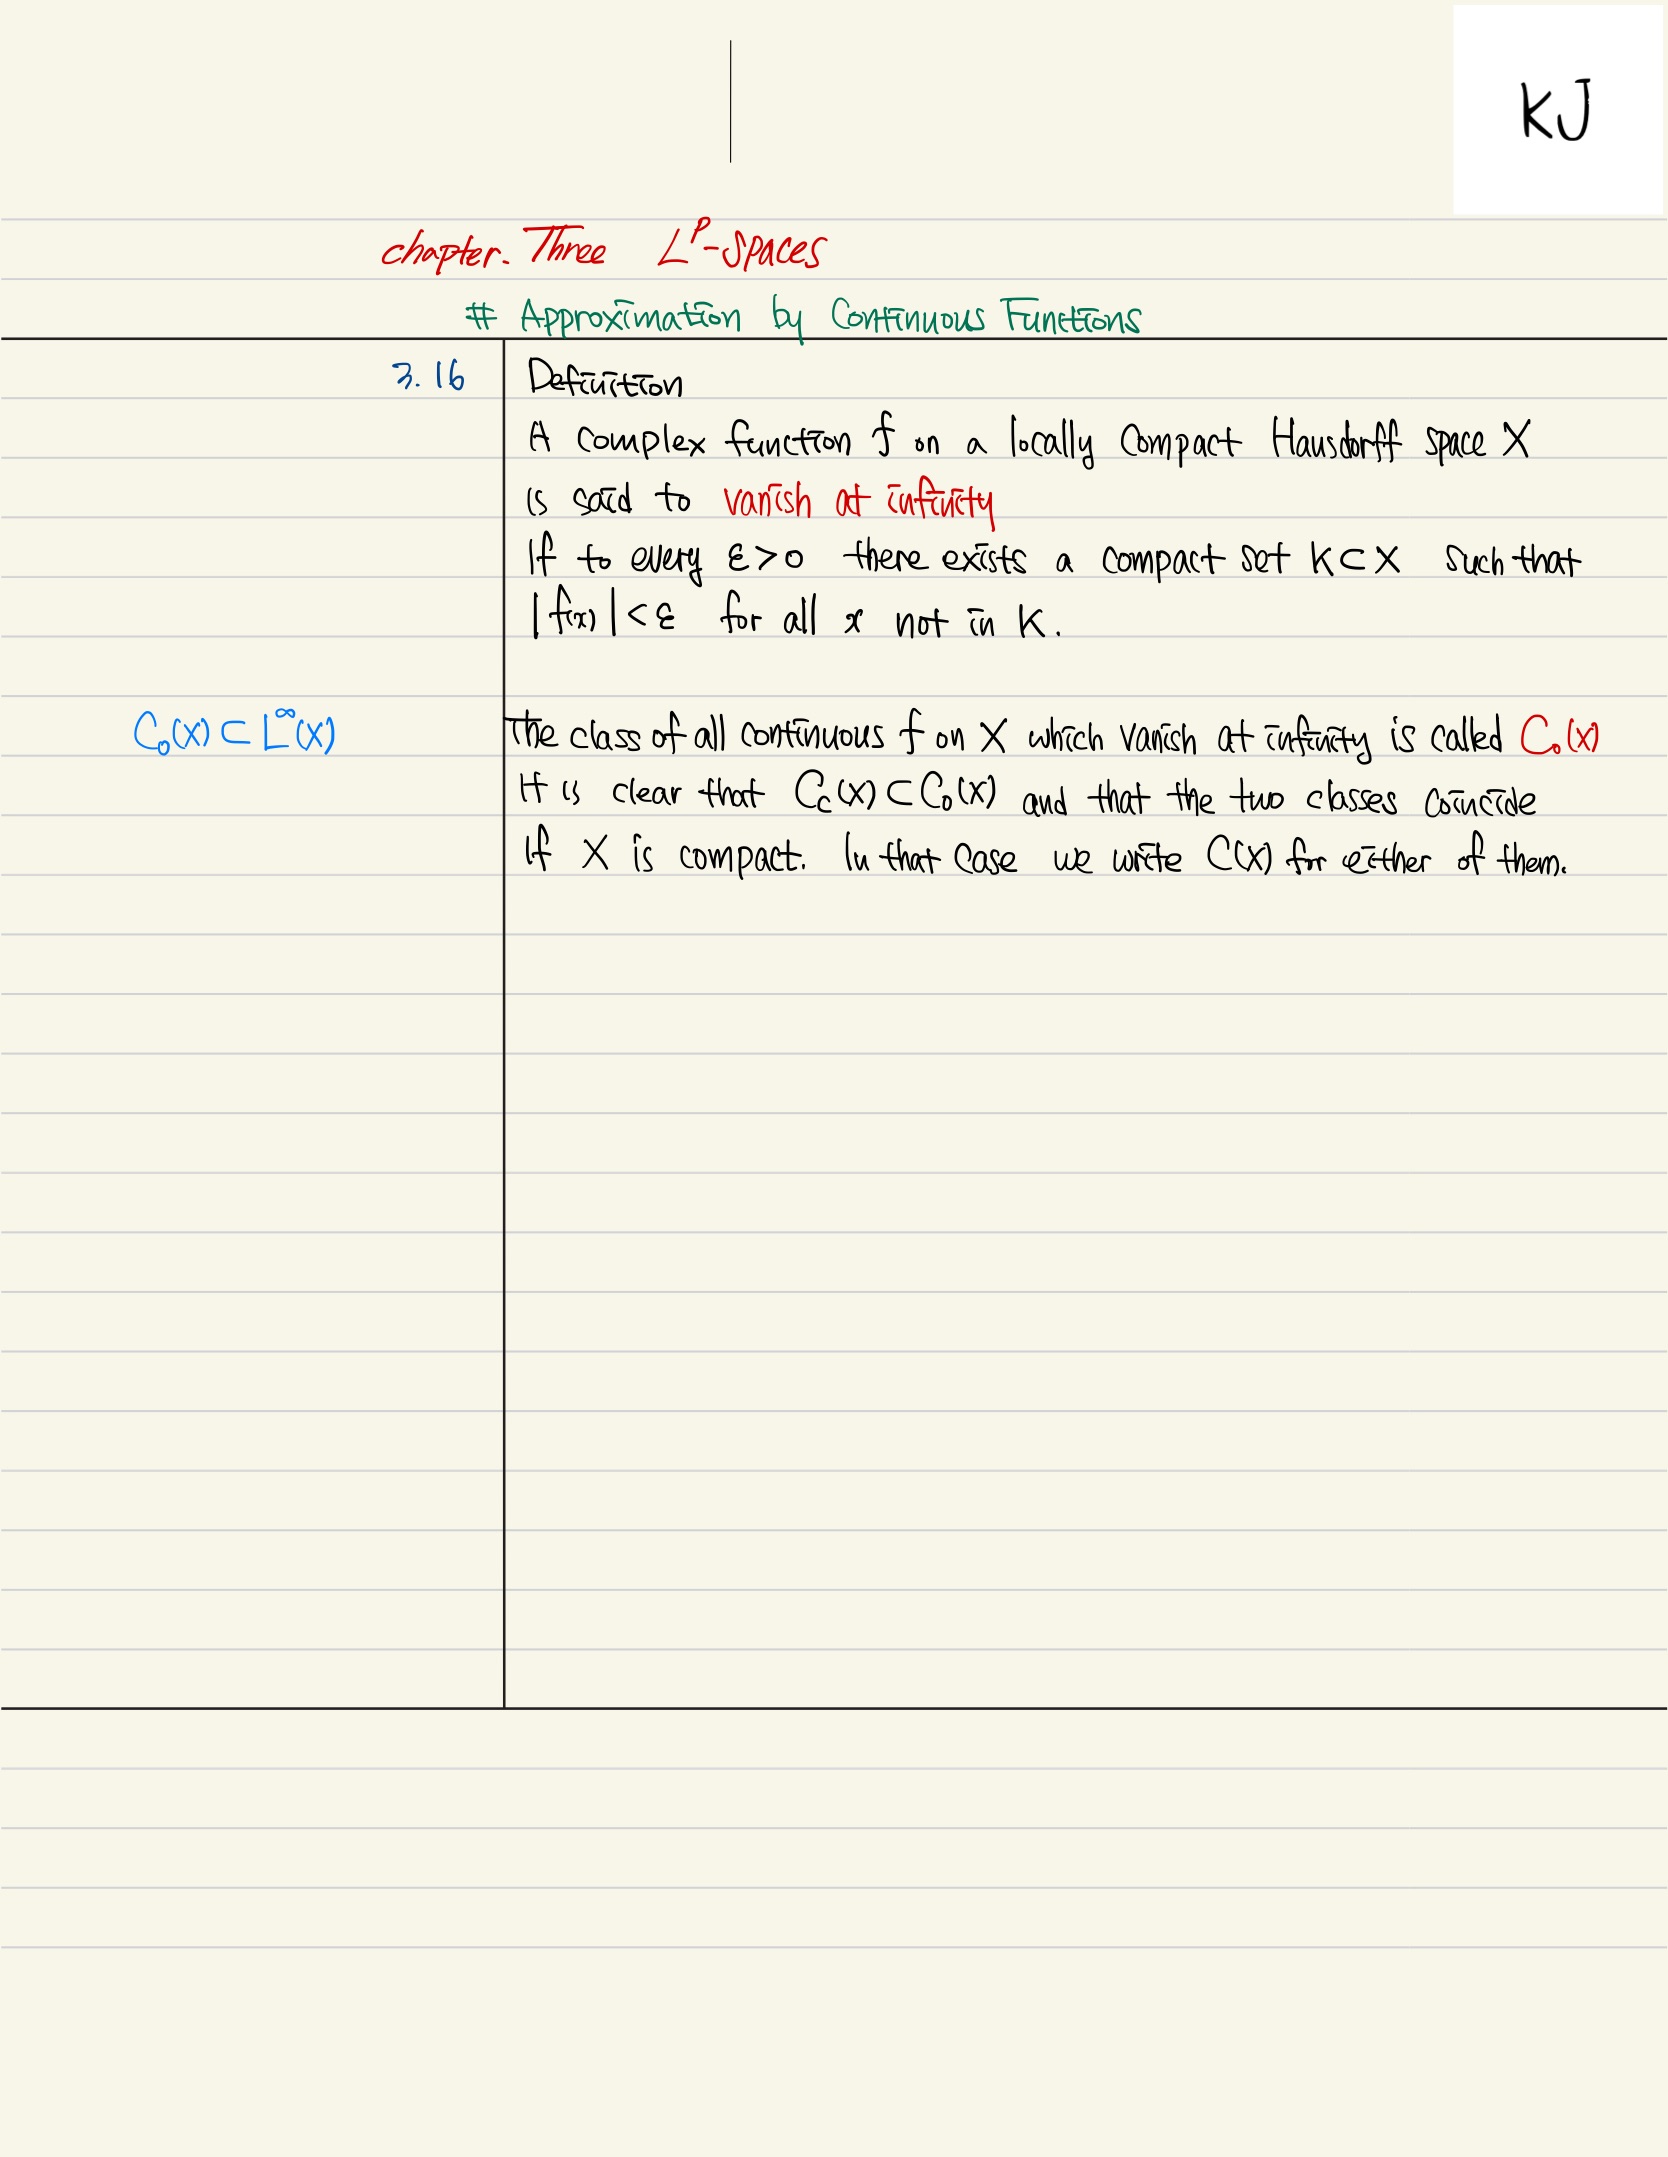 KJ
chapter. Three L^p-spaces
# Approximation by Continuous Functions
3.16 Definition
A complex function f on a locally compact Hausdorff space X
is said to vanish at infinity
If to every ε>0 there exists a compact set K⊂X such that
|f(x)|<ε for all x not in K.
C₀(X)⊂L^∞(X) The class of all continuous f on X which vanish at infinity is called C₀(X)
It is clear that C_c(X)⊂C₀(X) and that the two classes coincide
If X is compact. In that case we write C(X) for either of them.